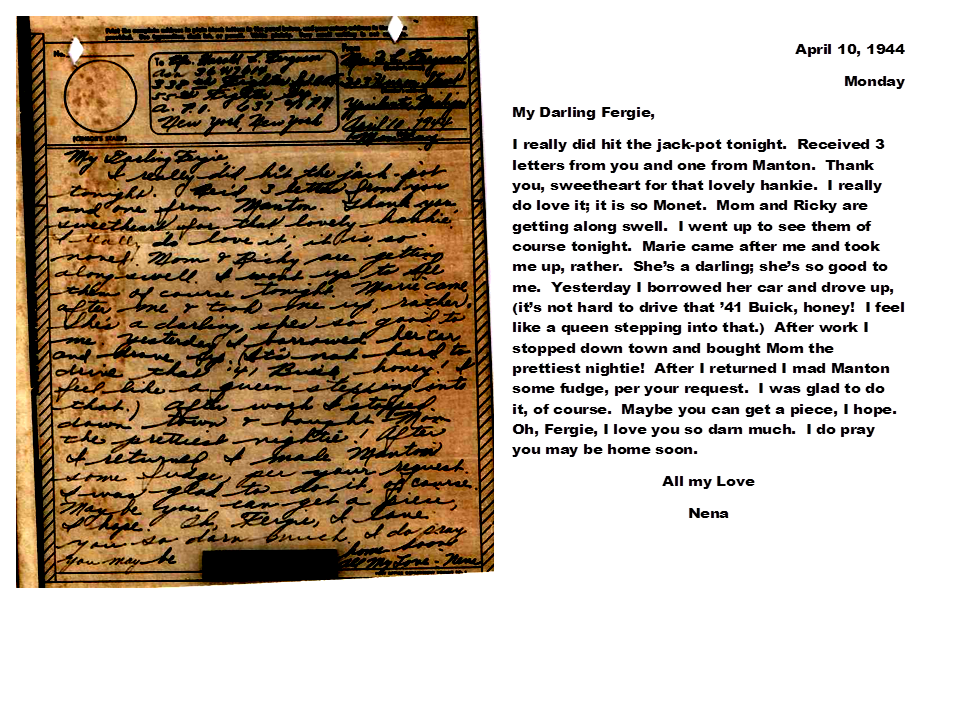 No.
(CENSOR'S STAMP)
To
A.P.O. 637
New York, New York
April 10, 1944
Monday
My Darling Fergie,
I really did hit the jack-pot
tonight. Rec'd 3 letters from you
and one from Manton. Thank you,
sweetheart for that lovely hankie.
I really do love it, it is so
monet. Mom & Ricky are getting
along swell. I went up to see
them of course tonight. Marie came
after me & took me up, rather.
She's a darling, she's so good to
me. Yesterday I borrowed her car
and drove up, (it's not hard to
drive that '41 Buick, honey! I
feel like a queen stepping into
that.) After work I stopped
down town & bought Mom
the prettiest nightie! After
I returned I made Manton
some fudge, per your request.
I was glad to do it, of course.
Maybe you can get a piece,
I hope. Oh, Fergie, I love
you so darn much. I do pray
you may be home soon.
All My Love - Nena
April 10, 1944
Monday
My Darling Fergie,
I really did hit the jack-pot tonight. Received 3
letters from you and one from Manton. Thank
you, sweetheart for that lovely hankie. I really
do love it; it is so Monet. Mom and Ricky are
getting along swell. I went up to see them of
course tonight. Marie came after me and took
me up, rather. She's a darling; she's so good to
me. Yesterday I borrowed her car and drove up,
(it's not hard to drive that '41 Buick, honey! I feel
like a queen stepping into that.) After work I
stopped down town and bought Mom the
prettiest nightie! After I returned I mad Manton
some fudge, per your request. I was glad to do
it, of course. Maybe you can get a piece, I hope.
Oh, Fergie, I love you so darn much. I do pray
you may be home soon.
All my Love
Nena